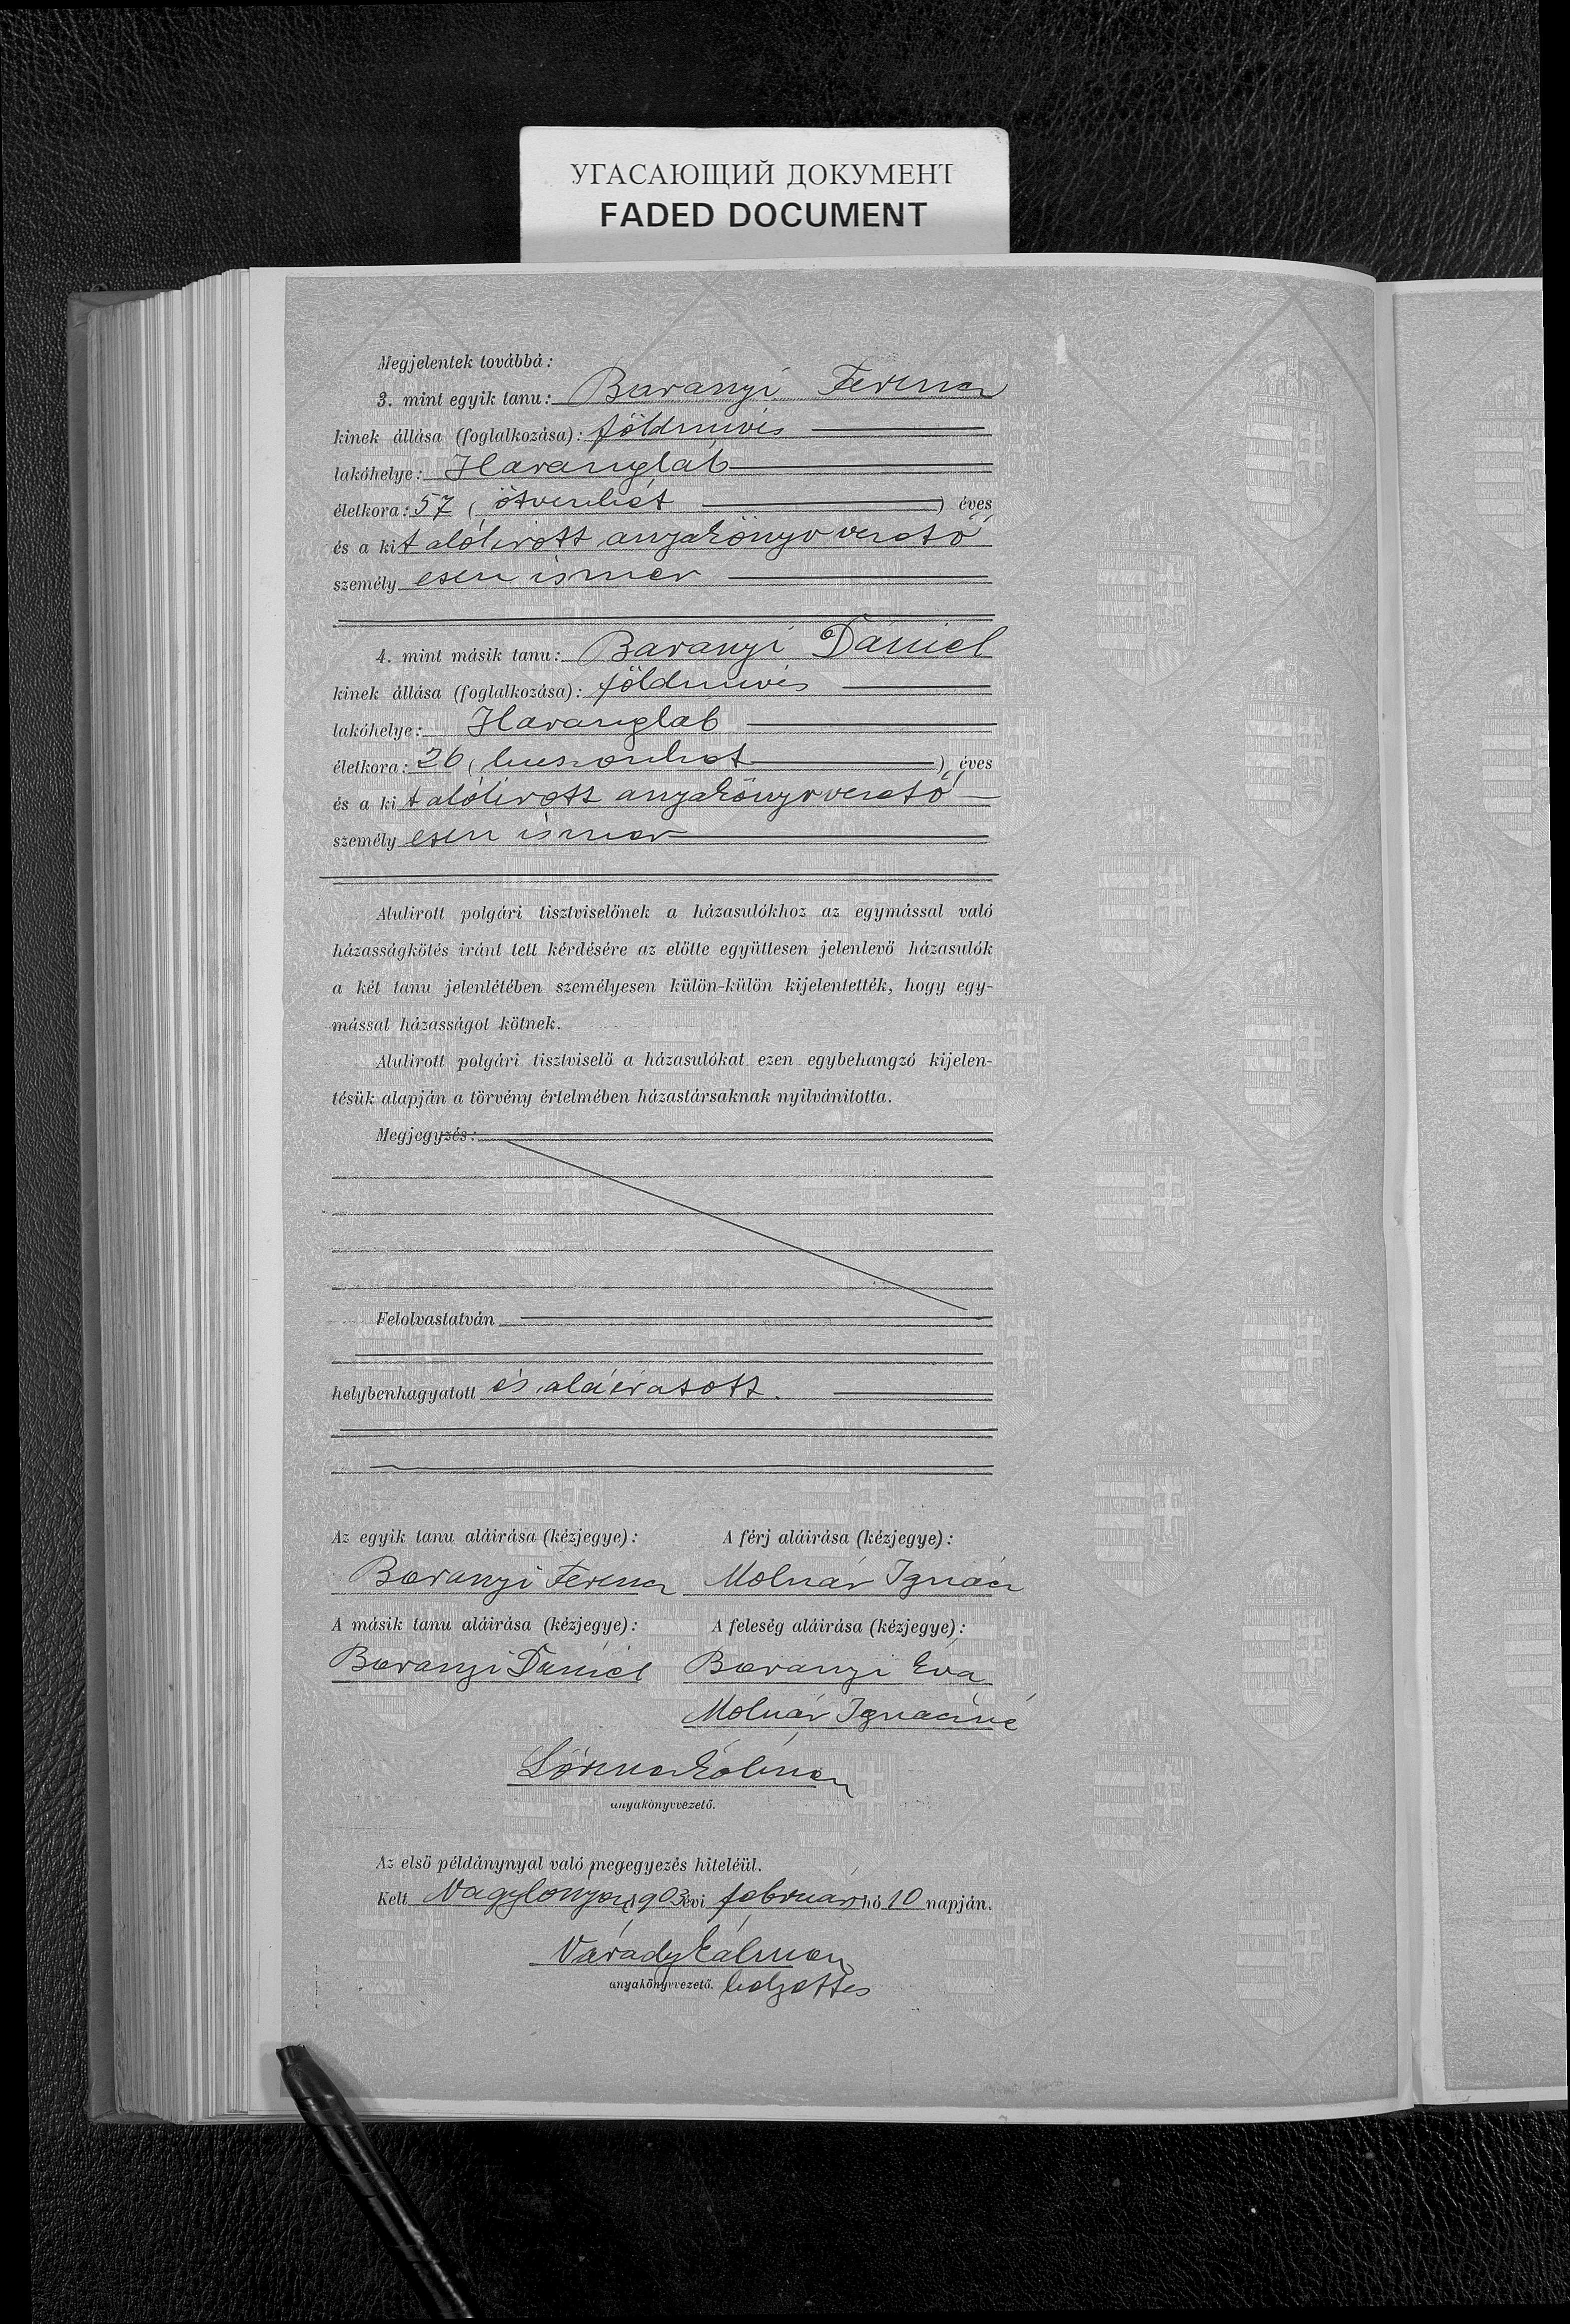 УГАСАЮЩИЙ ДОКУМЕНТ
FADED DOCUMENT
Megjelentek továbbá:
3. mint egyik tanu: Baranyi Ferencz
kinek állása (foglalkozása): földmivés
lakóhelye: Harangláb
életkora: 57 (ötvenhét) éves
és a kit alólirott anyakönyvvezető
személyesen ismer
4. mint másik tanu: Baranyi Dániel
kinek állása (foglalkozása): földmivés
lakóhelye: Harangláb
életkora: 26 (huszonhat) éves
és a kit alólirott anyakönyvvezető
személyesen ismer
Alulirott polgári tisztviselőnek a házasulókhoz az egymással való
házasságkötés iránt tett kérdésére az előtte együttesen jelenlevő házasulók
a két tanu jelenlétében személyesen külön-külön kijelentették, hogy egy-
mással házasságot kötnek.
Alulirott polgári tisztviselő a házasulókat ezen egybehangzó kijelen-
tésük alapján a törvény értelmében házastársaknak nyilvánitotta.
Megjegyzés:
Felolvastatván
helybenhagyatott és aláiratott.
Az egyik tanu aláirása (kézjegye): A férj aláirása (kézjegye):
Baranyi Ferencz Molnár Ignácz
A másik tanu aláirása (kézjegye): A feleség aláirása (kézjegye):
Baranyi Dániel Baranyi Éva
Molnár Ignáczné
Kálmán
anyakönyvvezető.
Az első példánynyal való megegyezés hiteléül.
Kelt Nagylónya 1903 évi február hó 10 napján.
Várady Kálmán
anyakönyvvezető. helyettes